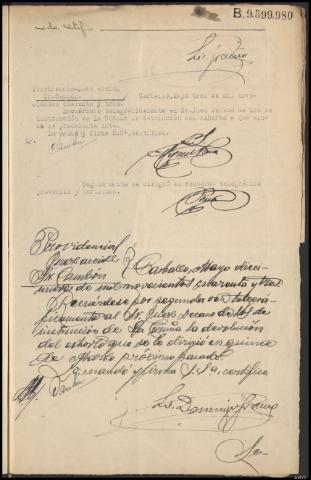 B.9.599.980
Providencia-Juez accid
Sr. Cambón. Carballo, Mayo tres de mil nove-
cientos cuarenta y tres.
Recuérdese telegráficamente al Sr. Juez Decano de los de
instrucción de La Coruña la devolución del exhorto a que alu-
de la precedente nota.
Lo mandó y firma S.Sª. certifico.
Cambón
Seguidamente se dirigió el recuerdo telegráfico
prevenido y certifico.
Providencia
Juez accidl.
Sr. Cambón
Carballo, Mayo dieci-
nueve de mil novecientos cuarenta y tres
Recuérdese por segunda vez telegrá-
ficamente al Sr. Juez Decano de los de
instrucción de La Coruña la devolución
del exhorto que se le dirigió en quince
de Marzo próximo pasado.
Lo mandó y firma S. Sª. certifico
Cambón
Lic. Domingo